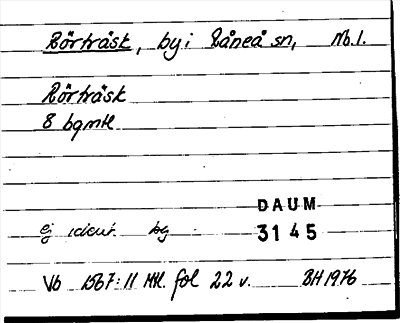 Rörträsk, by i Råneå sn, Nb.l.
Rörträsk
8 bgmtl
DAUM
ej ident. by 3145
Vb 1567:11 Mtl. fol 22 v. BH 1976